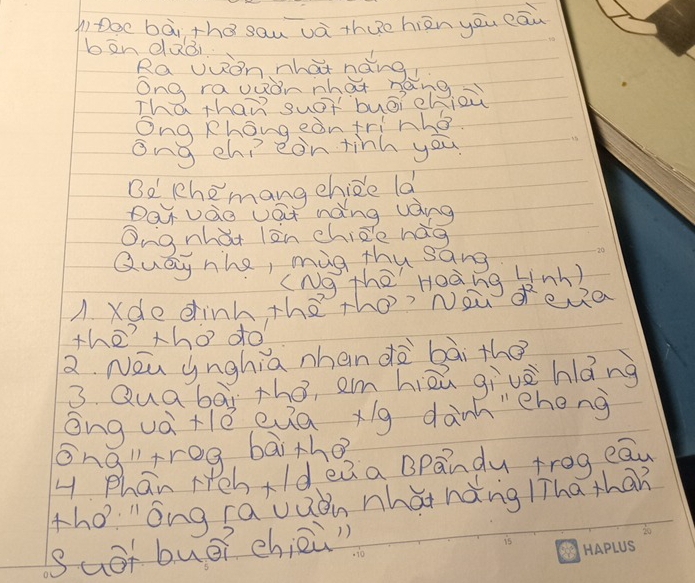 1) Đọc bài thơ sau và thực hiện yêu cầu
bên dưới
Ra vườn nhặt nắng
Ông ra vườn nhặt nắng
Tha thẩn suốt buổi chiều
Ông không còn trí nhớ
Ông chỉ còn tình yêu
Bé khẽ mang chiếc lá
Đặt vào vạt nắng vàng
Ông nhặt lên chiếc nắg
Quẫy nhẹ, mùa thu sang
(Ng thế Hoàng Linh)
1. Xđc định thể thơ? Nêu đ² của
thể thơ đó
2. Nêu ý nghĩa nhan đề bài thơ
3. Qua bài thơ, em hiểu gì về h/ả ng
ông và t/c của t/g dành "cho ng
ông" trog bài thơ
4 Phân tích t/d của BP ẩn dụ trog câu
thơ: "Ông ra vườn nhặt nắng / Tha thẩn
suốt buổi chiều"
HAPLUS
0 5 10 15 20